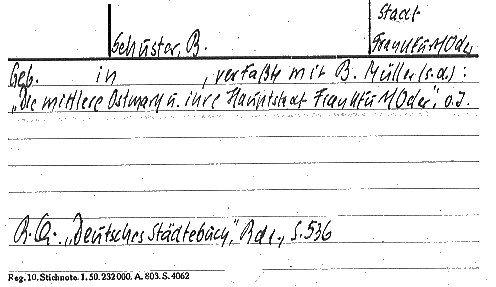 Stadt
Schuster, B. Frankfurt/Oder
Geb. in , verfaßte mit B. Müller (s.d.):
„Die mittlere Ostmark u. ihre Hauptstadt Frankfurt/Oder", o.J.
„Deutsches Städtebuch", Bd 1, S. 536
Reg. 10. Stichnote. 1. 50. 232 000. A. 803. S. 4062